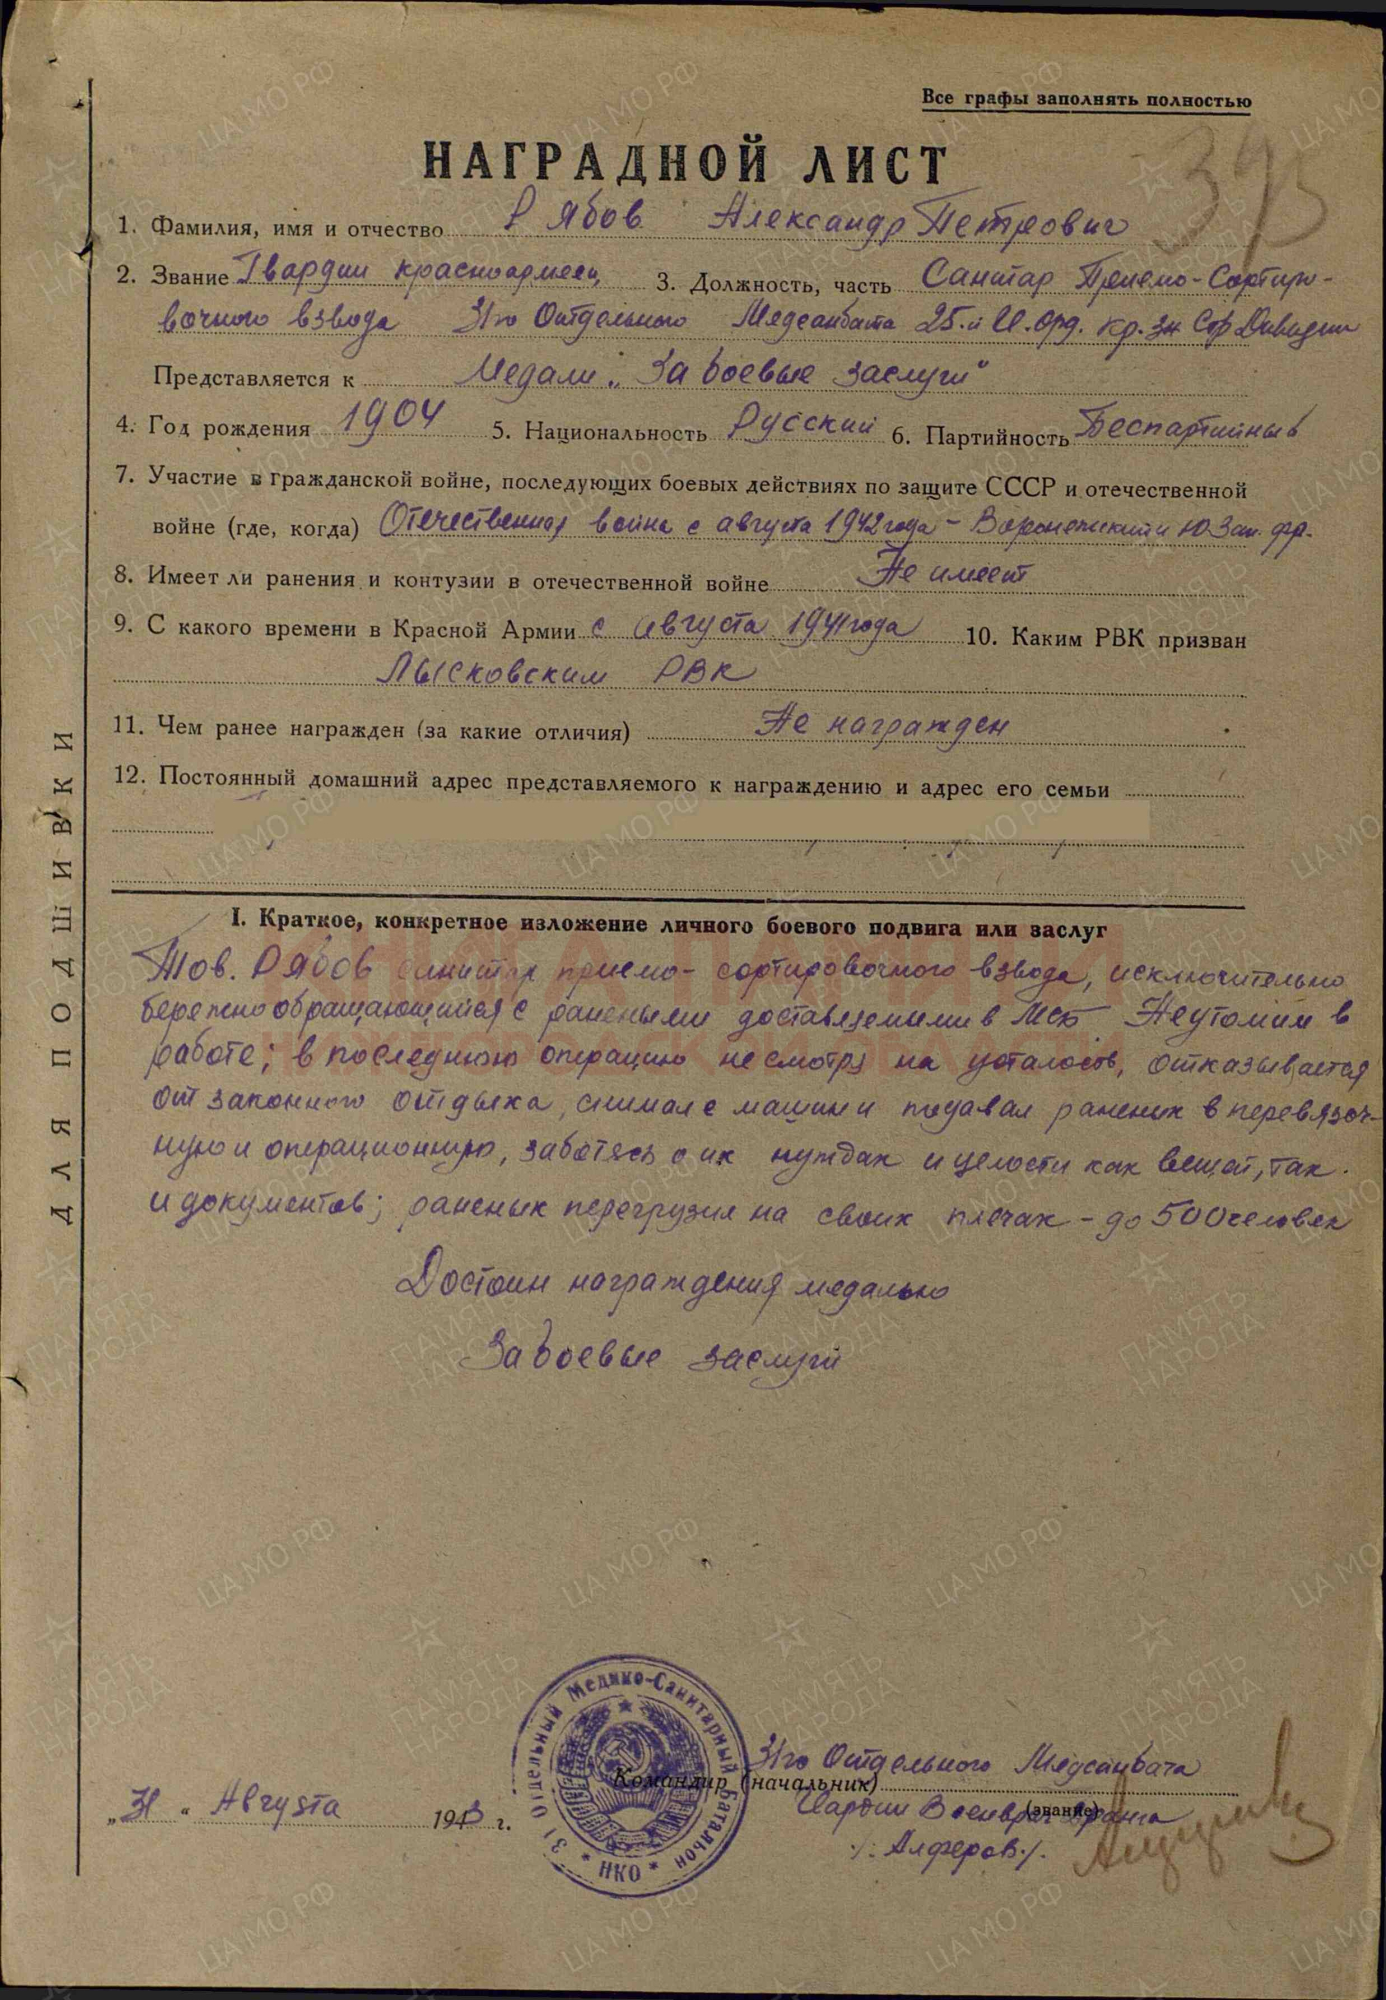 Все графы заполнять полностью
НАГРАДНОЙ ЛИСТ
1. Фамилия, имя и отчество Рябов Александр Петрович
2. Звание Гвардии красноармеец 3. Должность, часть Санитар Приемо-Сортиро-
вочного взвода 31го Отдельного Медсанбата 25-й Кр. Зн Стр Дивизии
Представляется к Медали „За боевые заслуги"
4. Год рождения 1904 5. Национальность Русский 6. Партийность Беспартийный
7. Участие в гражданской войне, последующих боевых действиях по защите СССР и отечественной
войне (где, когда) Отечественная война с августа 1942 года – Воронежский и Ю Зап. фр.
8. Имеет ли ранения и контузии в отечественной войне Не имеет
9. С какого времени в Красной Армии с августа 1941 года 10. Каким РВК призван
Лысковским РВК
11. Чем ранее награжден (за какие отличия) Не награжден
12. Постоянный домашний адрес представляемого к награждению и адрес его семьи
I. Краткое, конкретное изложение личного боевого подвига или заслуг
Тов. Рябов санитар приемо-сортировочного взвода, исключительно
бережно обращающийся с ранеными доставляемыми в МСБ Неутомим в
работе; в последнюю операцию не смотря на усталость, отказывается
от законного отдыха, снимал с машин и подавал раненых в перевязоч-
ную и операционную, заботясь о их нуждах и целости как вещей, так
и документов; раненых перегрузил на своих плечах – до 500 человек
Достоин награждения медалью
За боевые заслуги
31го Отдельного Медсанбата
Командир (начальник)
(звание)
Гвардии Военврач ранга
/: Алферов /.
„31" Августа 1943 г.
31 Отдельный Медико-Санитарный Батальон * НКО *
ДЛЯ ПОДШИВКИ
ЦА МО РФ
ПАМЯТЬ НАРОДА